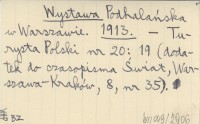 Wystawa Podhalańska
w Warszawie. 1913. – Tu-
rysta Polski nr 20: 19 (doda-
tek do czasopisma Świat, War-
szawa-Kraków, 8, nr 35).
BZ